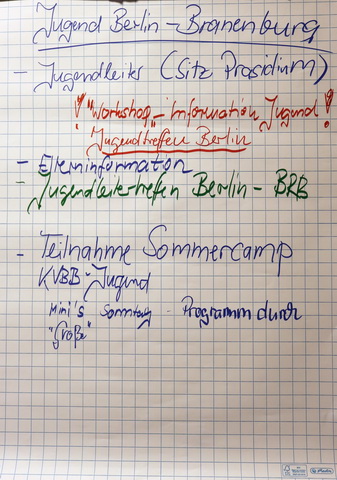 Jugend Berlin-Branenburg
- Jugendleiter (Sitz Präsidium)
! "Workshop" - Information Jugend !
Jugendtreffen Berlin
- Elterninformation
- Jugendleitertreffen Berlin - BRB
- Teilnahme Sommercamp
KVBB-Jugend
Mini's Sonntag - Programm durch
"Große"